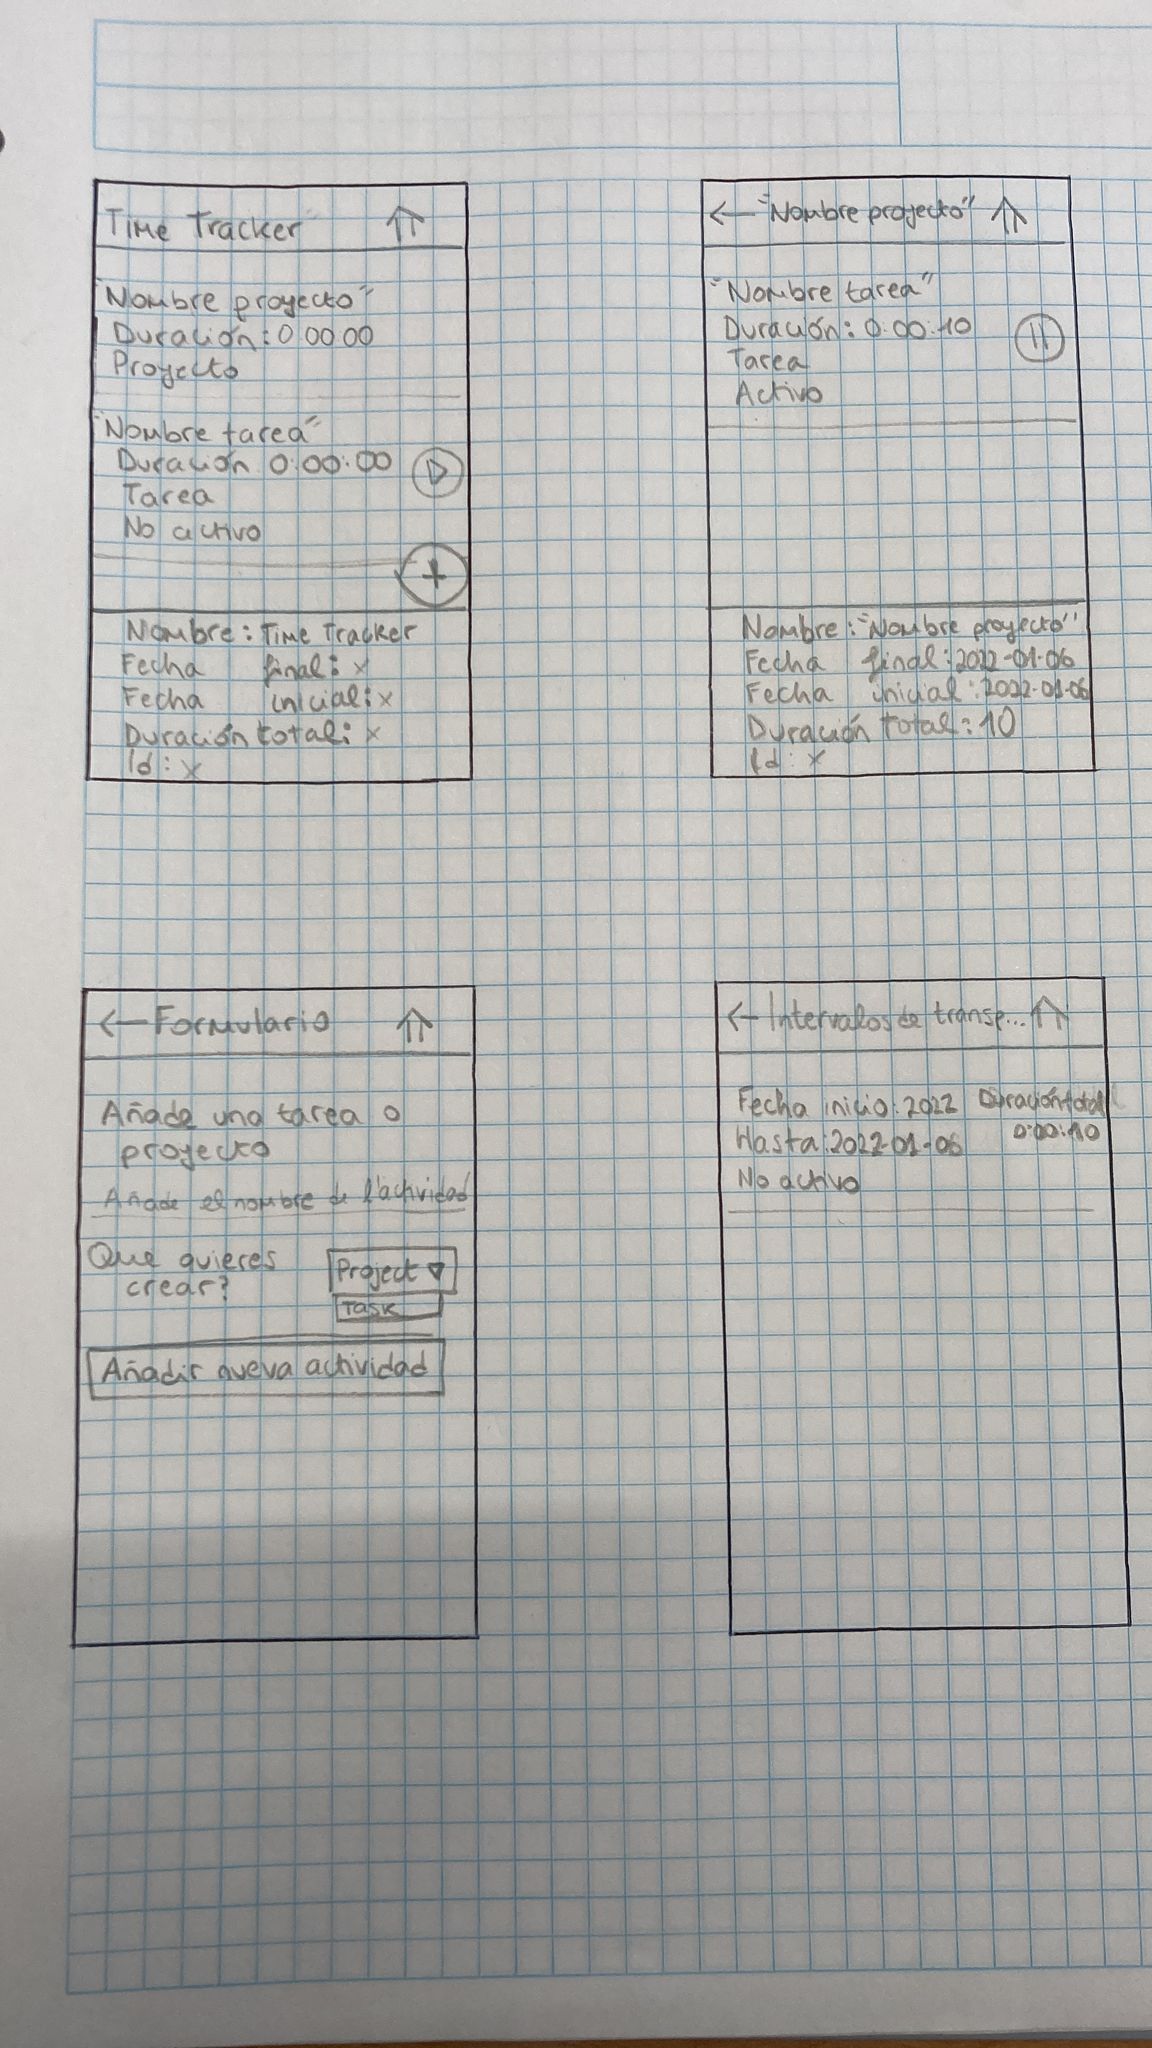 Time Tracker
"Nombre proyecto"
Duración: 0 00 00
Proyecto
"Nombre tarea"
Duración 0:00:00
Tarea
No activo
+
Nombre: Time Tracker
Fecha final: x
Fecha inicial: x
Duración total: x
Id: x
"Nombre proyecto"
"Nombre tarea"
Duración: 0:00:10
Tarea
Activo
Nombre: "Nombre proyecto"
Fecha final: 2022-01-06
Fecha inicial: 2022-01-06
Duración total: 10
Id: x
Formulario
Añade una tarea o
proyecto
Añade el nombre de l'actividad
Que quieres
crear?
Project
Task
Añadir nueva actividad
Intervalos de transp...
Fecha inicio: 2022 Duración total
Hasta: 2022-01-06 0:00:10
No activo